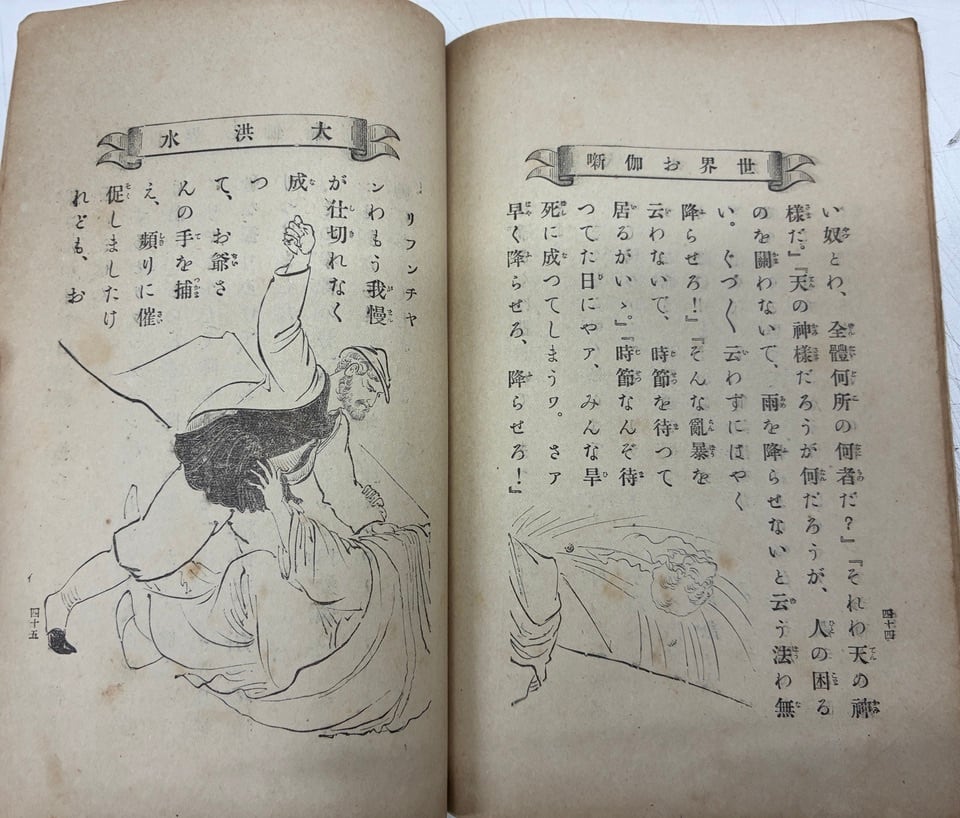 世界お伽噺
い奴とわ、全體何所の何者だ?』『それわ天の神
樣だ。』『天の神樣だろうが何だろうが、人の困る
のを關わないで、雨を降らせないと云う法わ無
い。ぐづ〱云わずにはやく
降らせろ!』『そんな亂暴を
云わないで、時節を待つて
居るがいゝ。』『時節なんぞ待
つてた日にやア、みんな旱
死に成つてしまうワ。さア
早く降らせろ、降らせろ!』
四十四
大洪水
リフンチヤ
ンわもう我慢
が仕切れなく
成
つ
て、お爺さ
んの手を捕
え、頻りに催
促しましたけ
れども、お
四十五